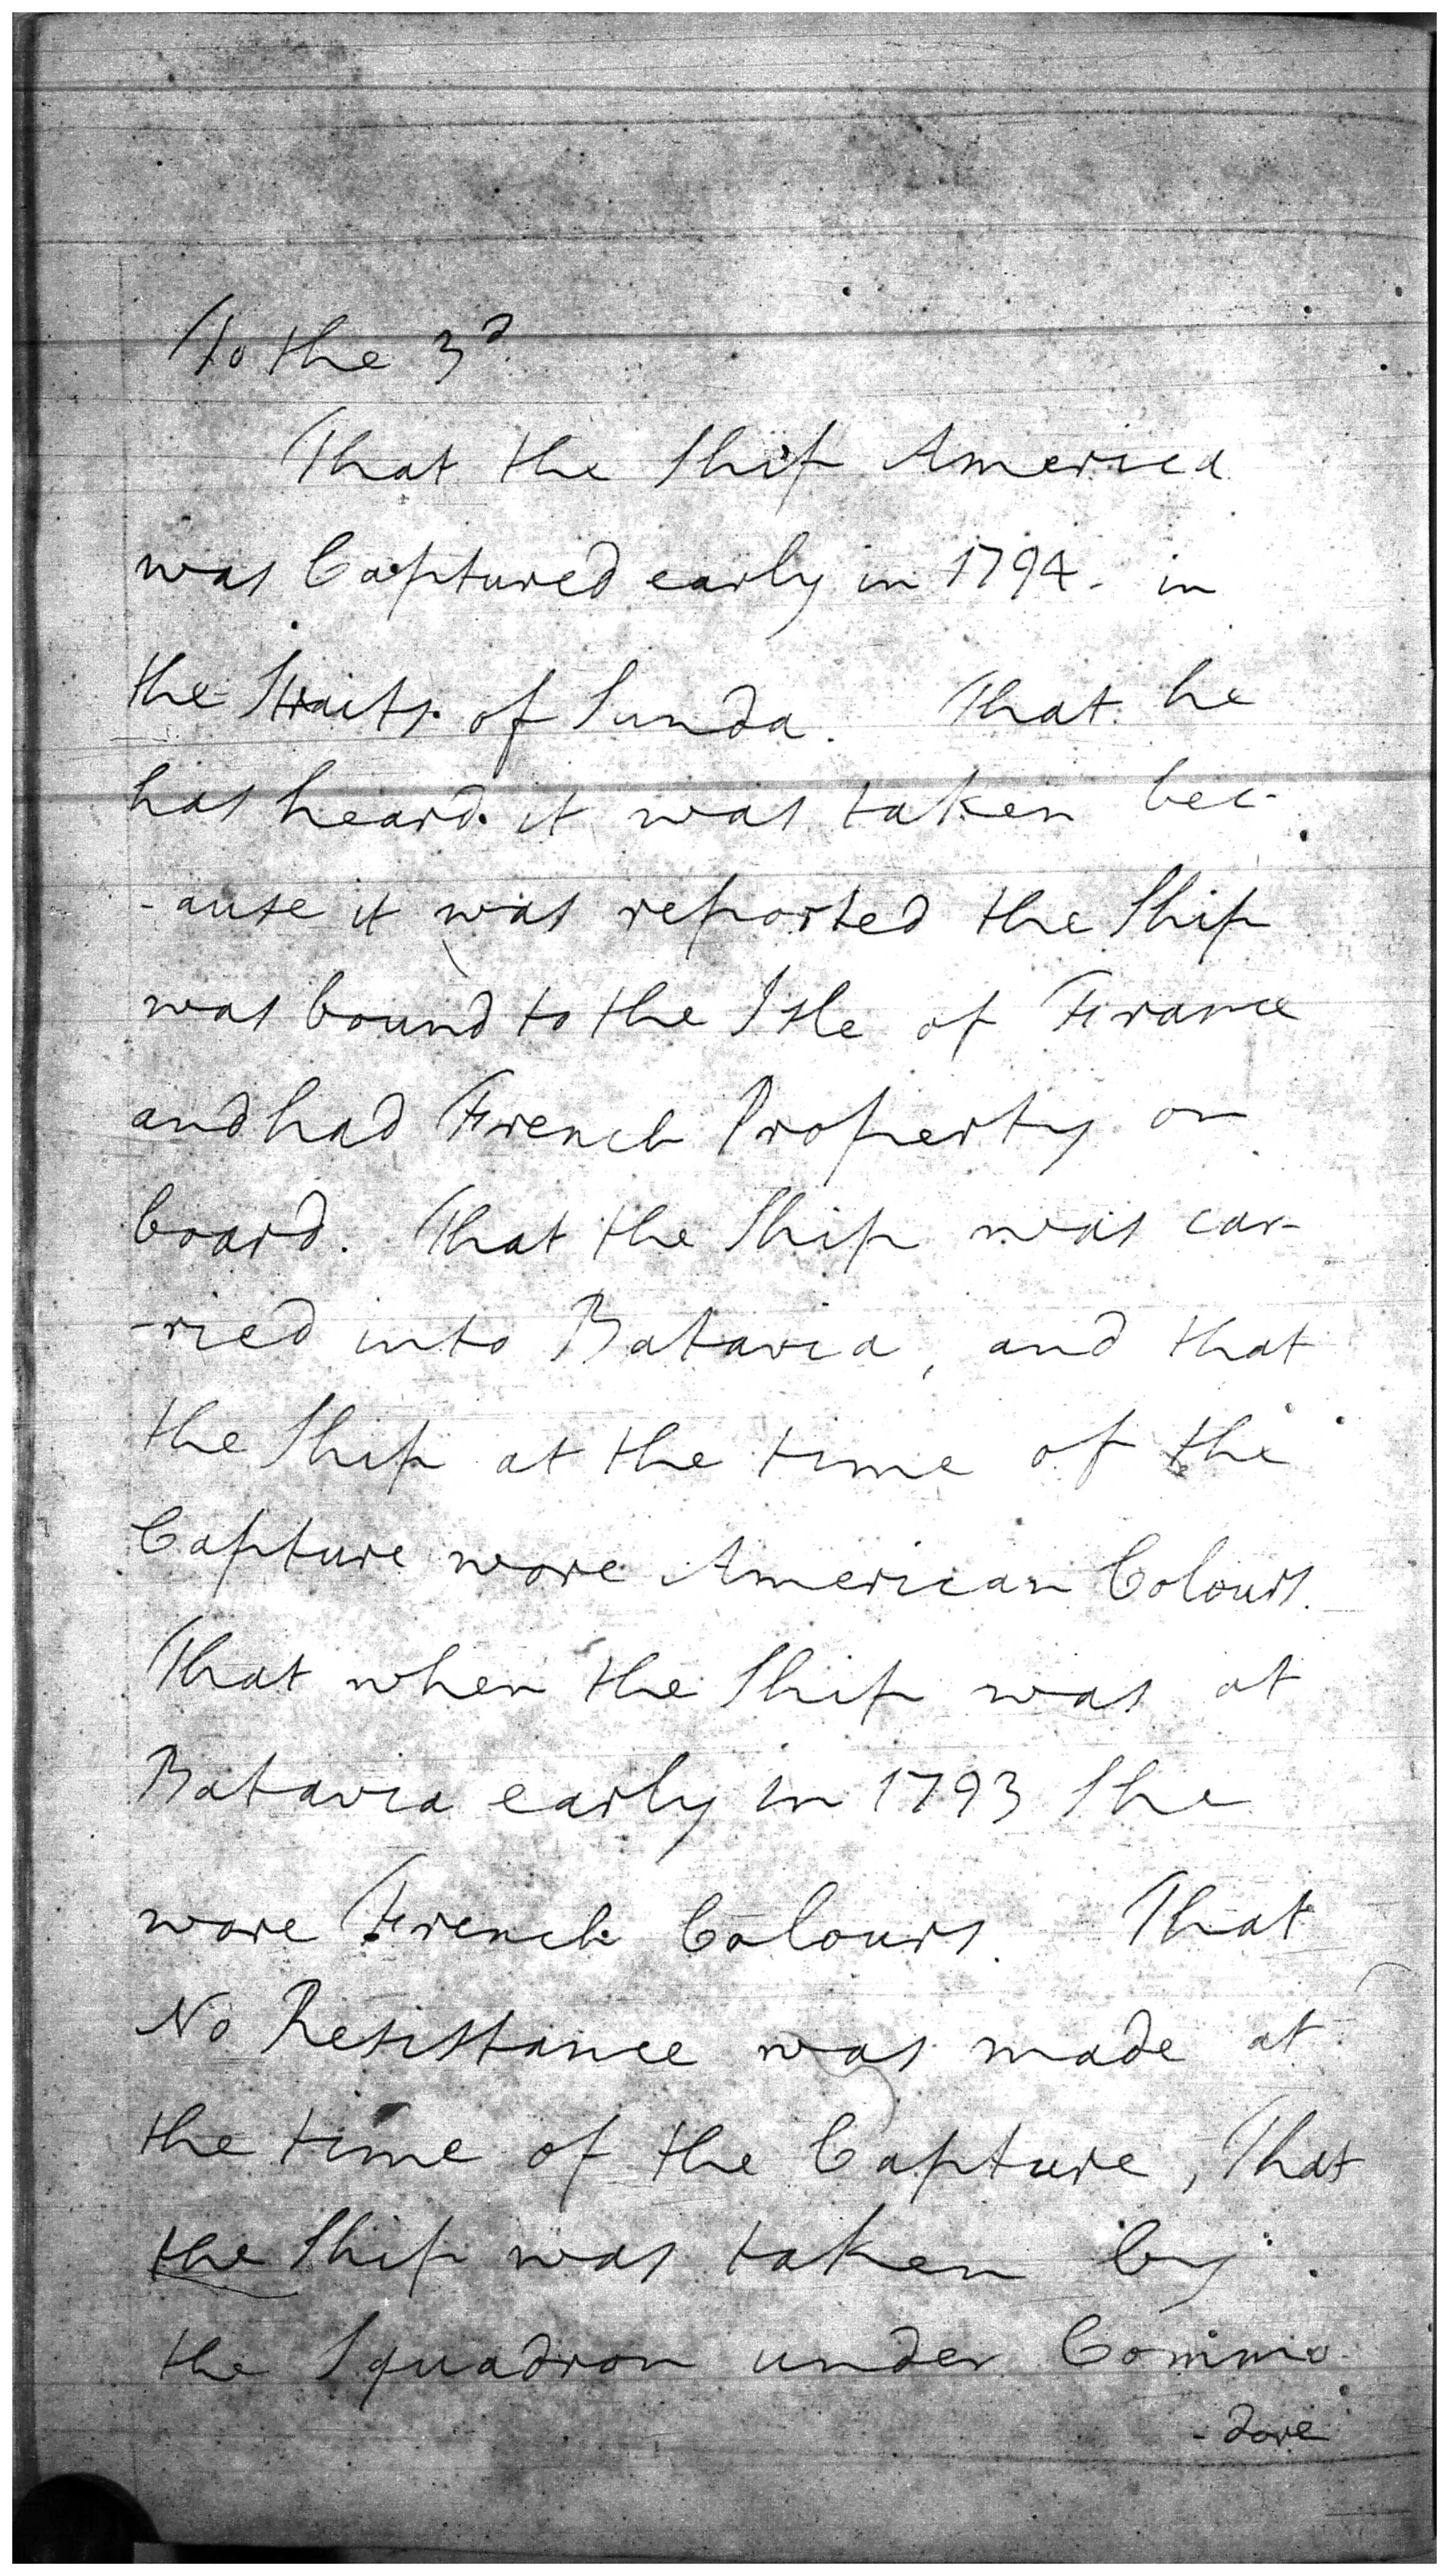 To the 3d.
That the Ship America
was Captured early in 1794. in
the Straits of Sunda. That he
has heard it was taken bec-
-ause it was reported the Ship
was bound to the Isle of France
and had French Property on
board. That the Ship was car-
-ried into Batavia, and that
the Ship at the time of the
Capture wore American Colours.
That when the Ship was at
Batavia early in 1793 She
wore French Colours. That
No Resistance was made at
the time of the Capture, That
the Ship was taken by
the Squadron under Commo-
-dore